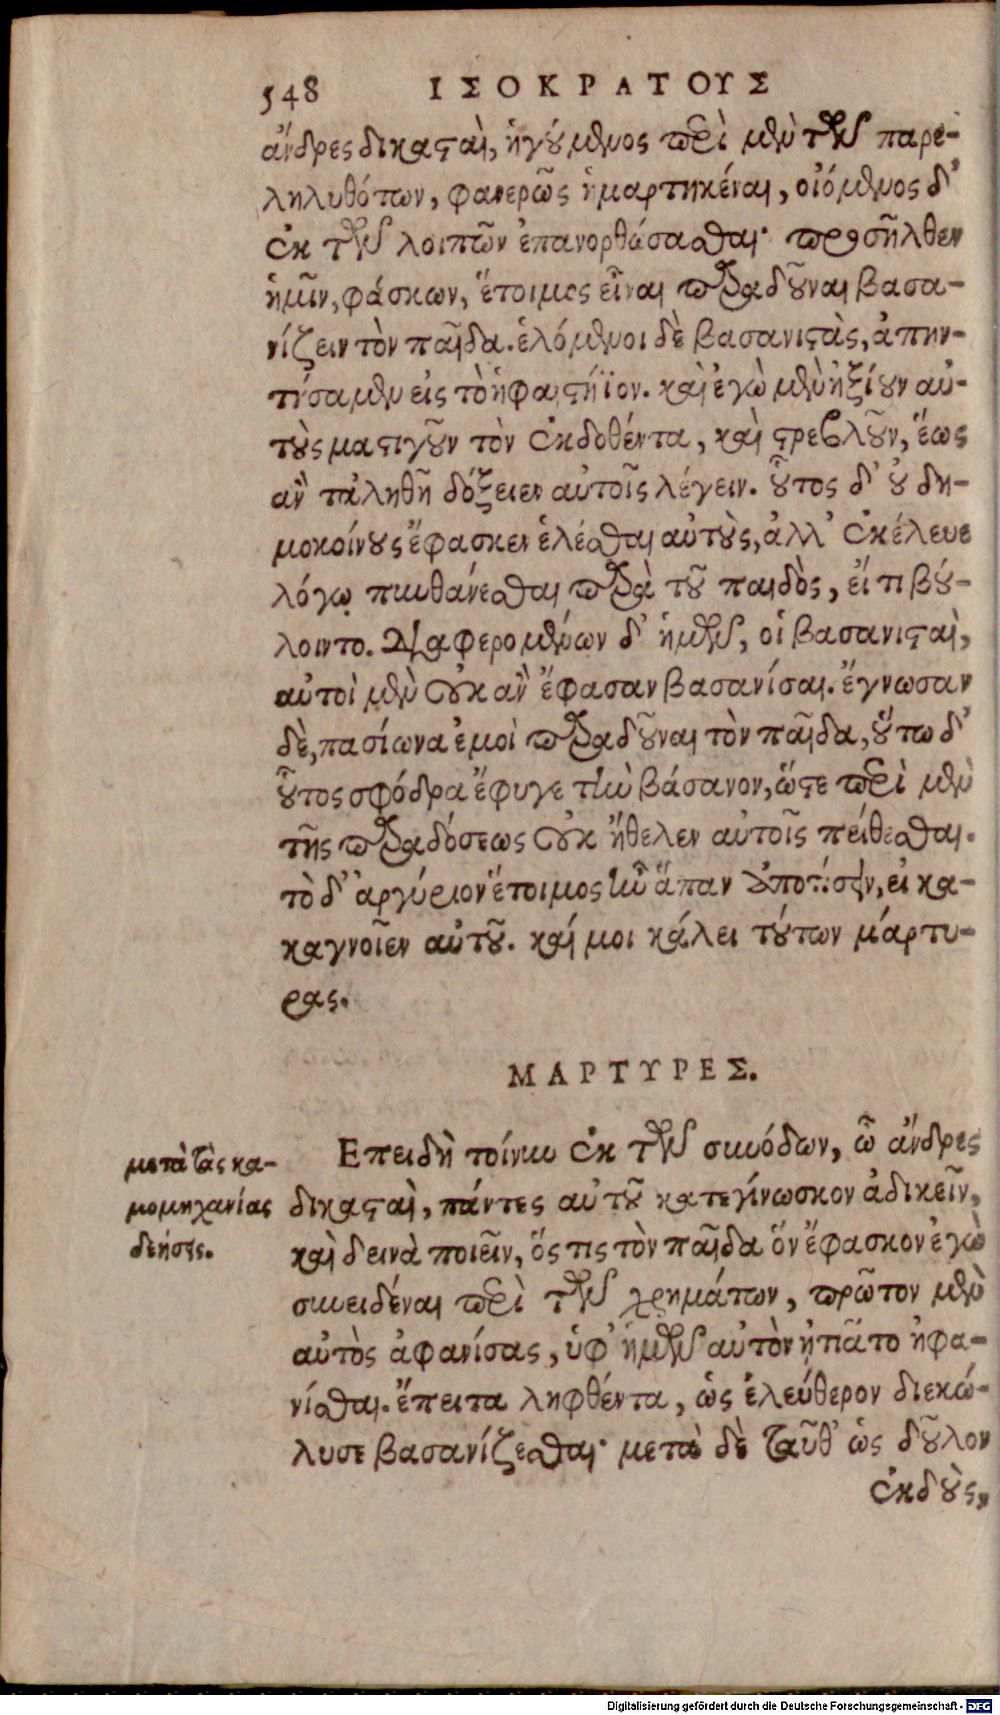 548 ΙΣΟΚΡΑΤΟΥΣ
ἄνδρες δικασταὶ, ἡγούμενος περὶ μὲν τῶν παρε-
ληλυθότων, φανερῶς ἡμαρτηκέναι, οἰόμενος δ'
ἐκ τῶν λοιπῶν ἐπανορθώσασθαι· προσῆλθεν
ἡμῖν, φάσκων, ἕτοιμος εἶναι παραδοῦναι βασα-
νίζειν τὸν παῖδα. ἑλόμενοι δὲ βασανιστὰς, ἀπην-
τήσαμεν εἰς τὸ ἡφαιστήϊον. καὶ ἐγὼ μὲν ἠξίουν αὐ-
τοὺς μαστιγοῦν τὸν ἐκδοθέντα, καὶ στρεβλοῦν, ἕως
ἂν τἀληθῆ δόξειεν αὐτοῖς λέγειν. οὗτος δ' οὐ δη-
μοκοίνους ἔφασκεν ἑλέσθαι αὐτοὺς, ἀλλ' ἐκέλευε
λόγῳ πυνθάνεσθαι παρὰ τοῦ παιδὸς, εἴ τι βού-
λοιντο. διαφερομένων δ' ἡμῶν, οἱ βασανισταὶ,
αὐτοὶ μὲν οὐκ ἂν ἔφασαν βασανίσαι. ἔγνωσαν
δὲ, πασίωνα ἐμοὶ παραδοῦναι τὸν παῖδα, οὕτω δ'
οὗτος σφόδρα ἔφυγε τὴν βάσανον, ὥστε περὶ μὲν
τῆς παραδόσεως οὐκ ἤθελεν αὐτοῖς πείθεσθαι.
τὸ δ' ἀργύριον ἕτοιμος ἦν ἅπαν ἀποτίσειν, εἰ κα-
καγνοῖεν αὐτοῦ. καί μοι κάλει τούτων μάρτυ-
ρας.
ΜΑΡΤΥΡΕΣ.
Επειδὴ τοίνυν ἐκ τῶν συνόδων, ὦ ἄνδρες
δικασταὶ, πάντες αὐτοῦ κατεγίνωσκον ἀδικεῖν,
καὶ δεινὰ ποιεῖν, ὅς τις τὸν παῖδα ὃν ἔφασκον ἐγὼ
συνειδέναι περὶ τῶν χρημάτων, πρῶτον μὲν
αὐτὸς ἀφανίσας, ὑφ' ἡμῶν αὐτὸν ᾐτιᾶτο ἠφα-
νίσθαι. ἔπειτα ληφθέντα, ὡς ἐλεύθερον διεκώ-
λυσε βασανίζεσθαι· μετὰ δὲ ταῦθ' ὡς δοῦλον
ἐκδοὺς,
μετὰ τὰς κα-
μομηχανίας
δεήσεις.
Digitalisierung gefördert durch die Deutsche Forschungsgemeinschaft - DFG